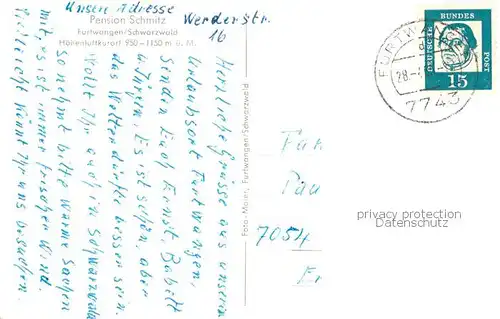 Unsere Adresse
Pension Schmitz Werderstr.
16
Furtwangen/Schwarzwald
Höhenluftkurort 950–1150 m ü. M.
Herzliche Grüsse aus unseren
Urlaubsort Furtwangen,
Senden Euch Ernst, Babett
u. Jürgen. Es ist schön, aber
das Wetter dürfte besser sein.
Wollt Ihr auch in Schwarzwald
so nehmt bitte warme Sachen
mit, es ist immer frischer Wind.
Vielleicht könnt Ihr uns besuchen.
Foto-Maier, Furtwangen/Schwarzwald
DEUTSCHE BUNDES POST
15
FURTW
28.
7743
Fam
Pau
7054
privacy protection
Datenschutz